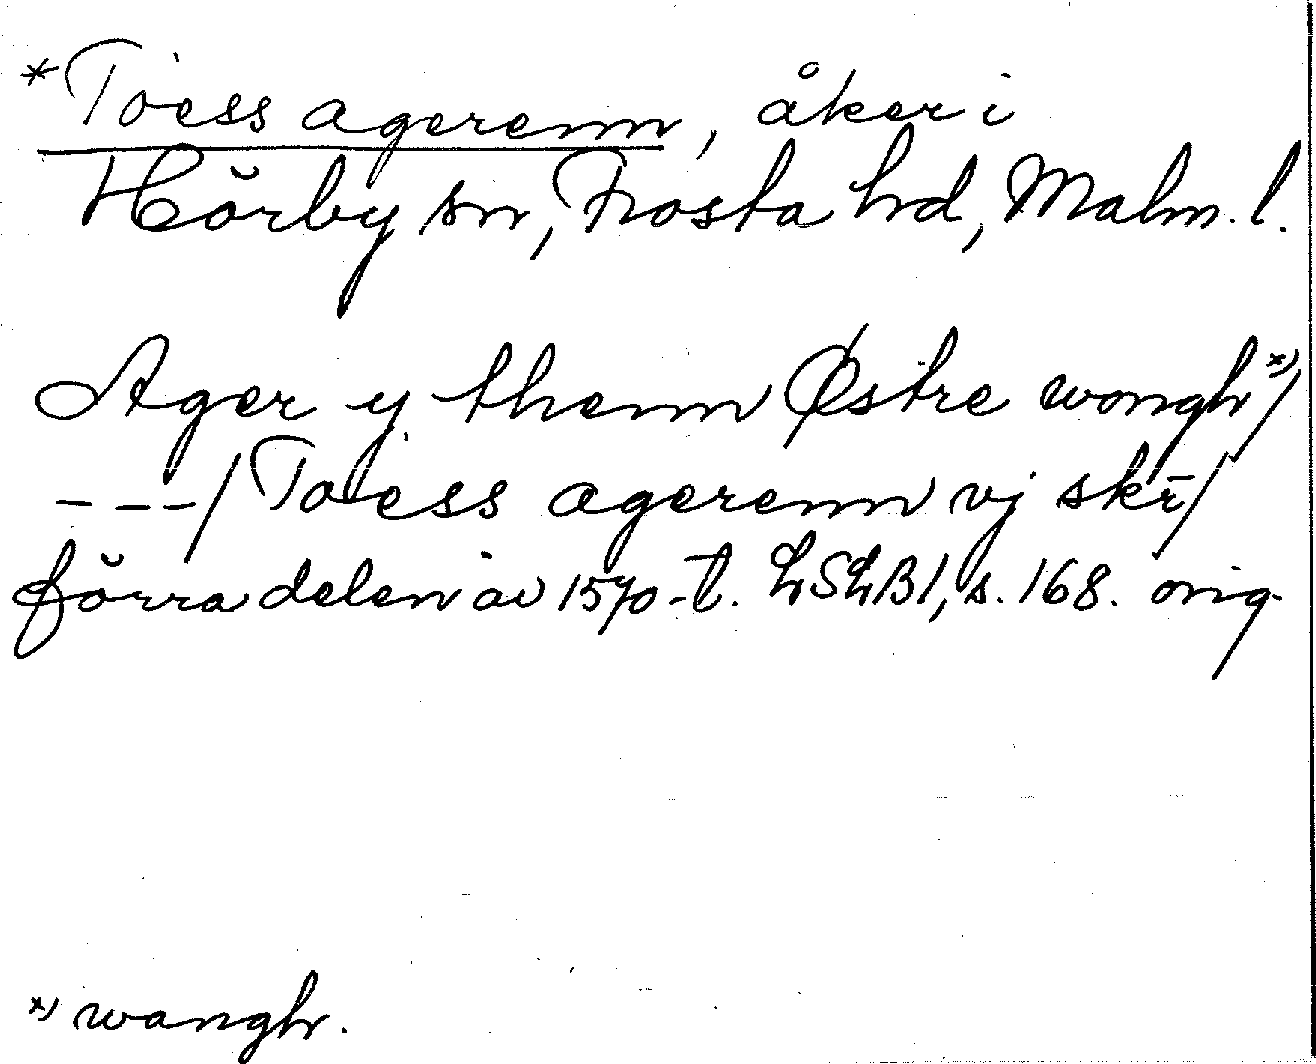 *Toess agerenn, åker i
Hörby sn, Frosta hd, Malm. l.
Ager y thenn Østre wongh*)/
---/Toess agerenn vj skr/
förra delen av 1570-t. LSLB1, s. 168. orig.
*) wangh.